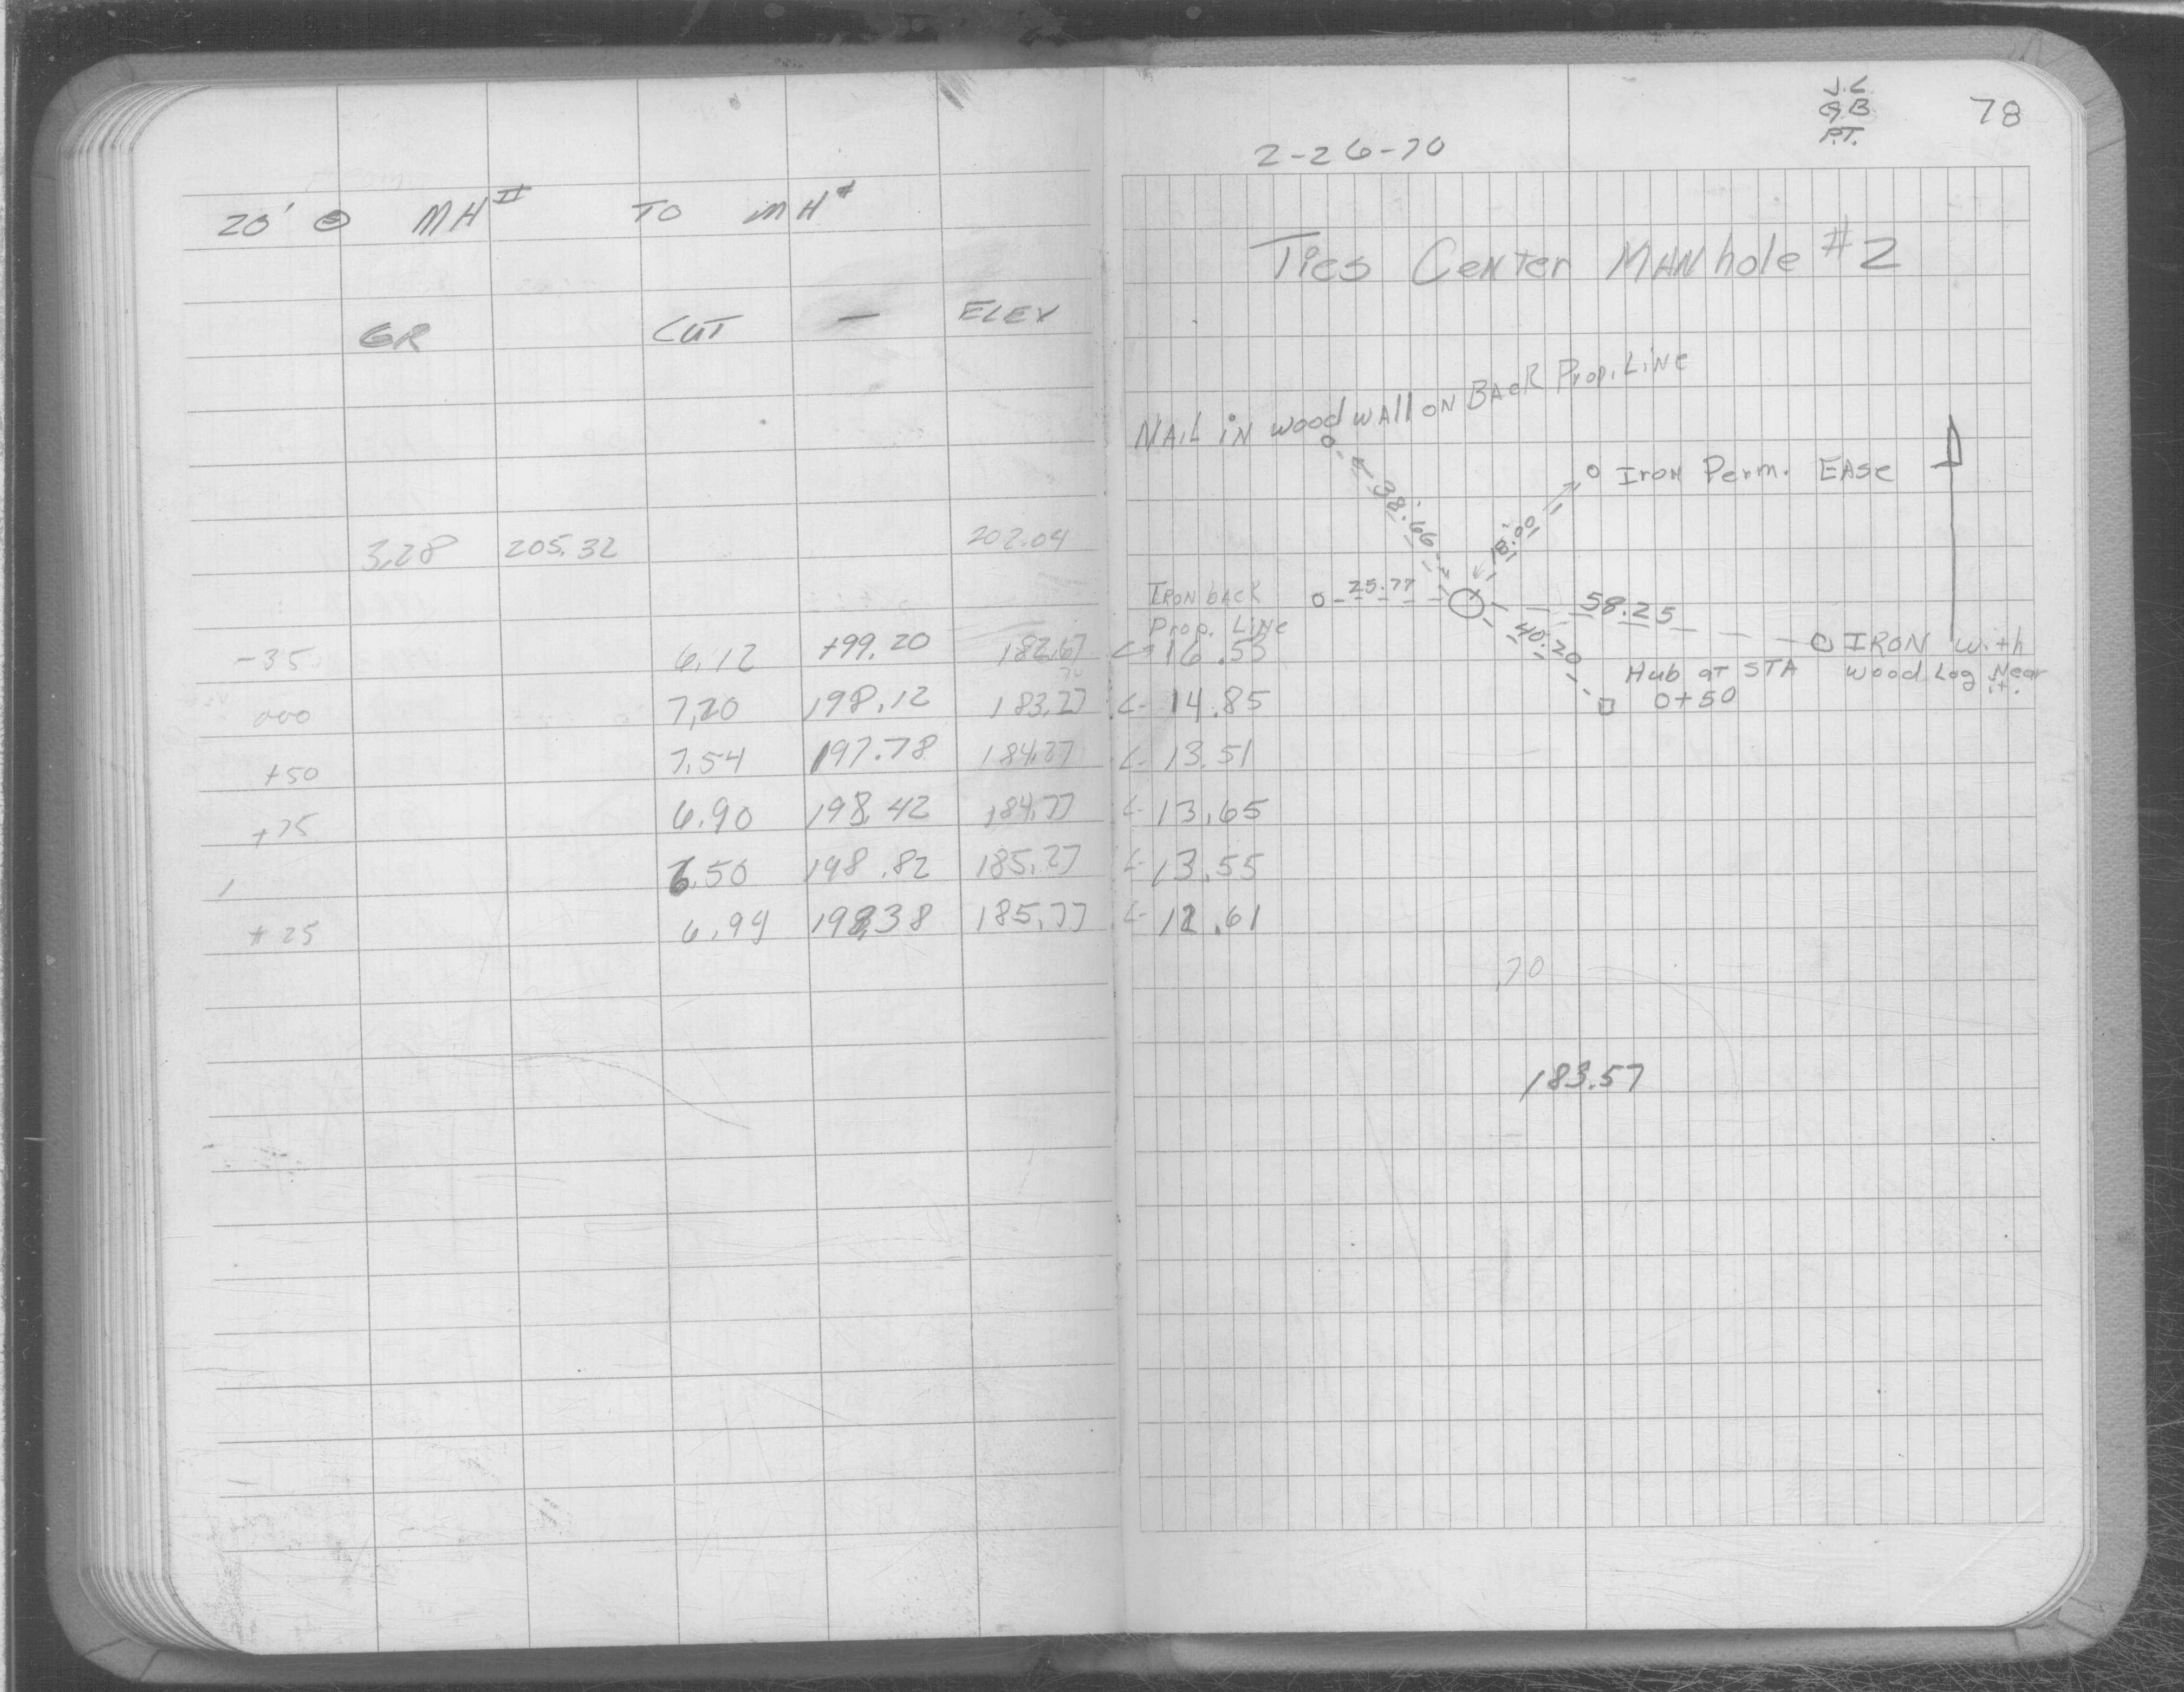 20' ⊖ MH II TO MH #
GR CUT — ELEV
3.28 205.32 202.04
-35 6.12 199.20 182.67
000 7.20 198.12 183.27
+50 7.54 197.78 184.27
+75 6.90 198.42 184.77
1 6.50 198.82 185.27
+25 6.94 198.38 185.77
J.C.
G.B.
P.T.
78
2-26-70
Ties Center MANhole #2
NAIL iN wood wAll ON BACK Prop. LiNE
38.66
Iron Perm. EAse
18.00
Iron back
Prop. Line
25.77
58.25
40.20
IRON with
wood Log Near
it.
Hub at STA
0+50
<- 16.53
<- 14.85
<- 13.51
<- 13.65
<- 13.55
<- 12.61
.70
183.57